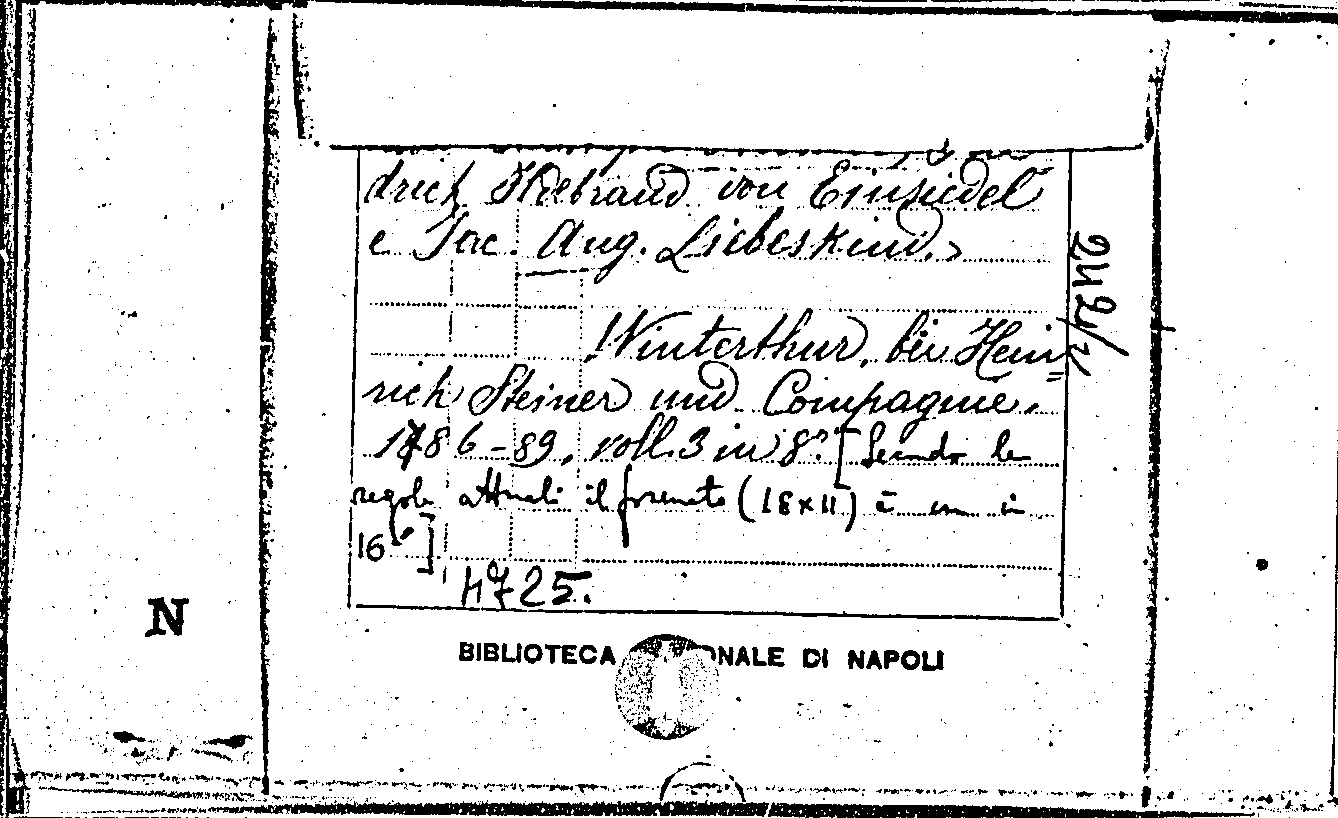 drich Hildebrand von Einsiedel
e Jac. Aug. Liebeskind.>
Winterthur, bei Hein=
rich Steiner und Compagnie.
1786-89, voll. 3 in 8º. [Secondo le
regole attuali il formato (18x11) è un in
16º]
4725.
242/2
N
BIBLIOTECA ONALE DI NAPOLI